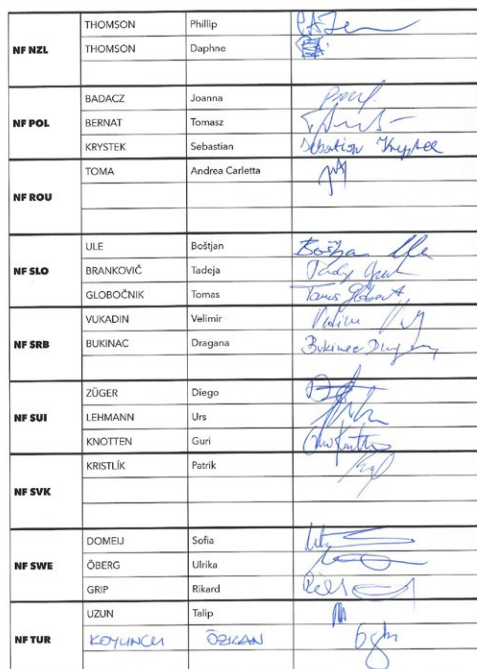 NF NZL THOMSON Phillip
THOMSON Daphne
NF POL BADACZ Joanna
BERNAT Tomasz
KRYSTEK Sebastian Sebastian Krystek
NF ROU TOMA Andrea Carletta
NF SLO ULE Boštjan Boštjan Ule
BRANKOVIČ Tadeja
GLOBOČNIK Tomas
NF SRB VUKADIN Velimir
BUKINAC Dragana Bukinac Dragana
NF SUI ZÜGER Diego
LEHMANN Urs
KNOTTEN Guri
NF SVK KRISTLÍK Patrik
NF SWE DOMEIJ Sofia
ÖBERG Ulrika
GRIP Rikard
NF TUR UZUN Talip
KOYUNCU ÖZKAN